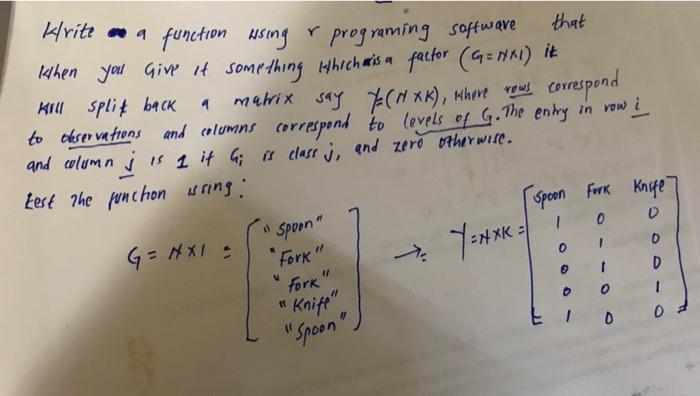 Write a function using r programing software that
When you Give it something which is a factor (G=N×1) it
will split back a matrix say Y=(N×K), where rows correspond
to observations and columns correspond to levels of G. The entry in row i
and column j is 1 if Gi is class j, and zero otherwise.
test the function using:
G = N×1 = [ "spoon" "Fork" "Fork" "Knife" "Spoon" ] → Y=N×K=
Spoon Fork Knife
1 0 0
0 1 0
0 1 0
0 0 1
1 0 0